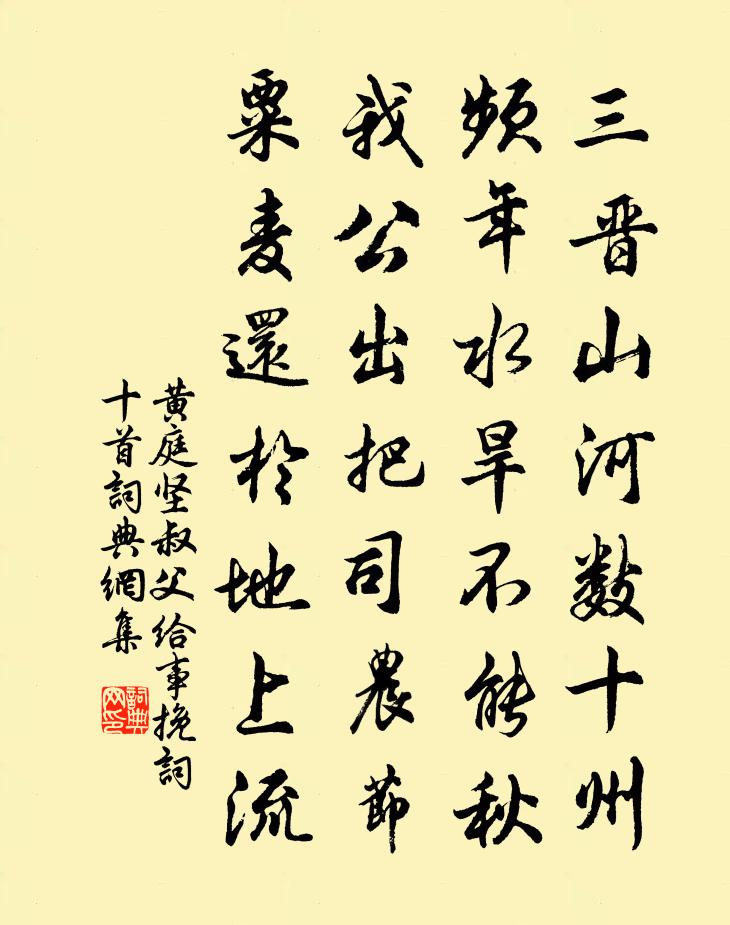 三晋山河数十州
頻年水旱不能秋
我公出把司農節
粟麦還於地上流
黄庭坚叔父给事挽詞
十首詞典網集
詞典网印